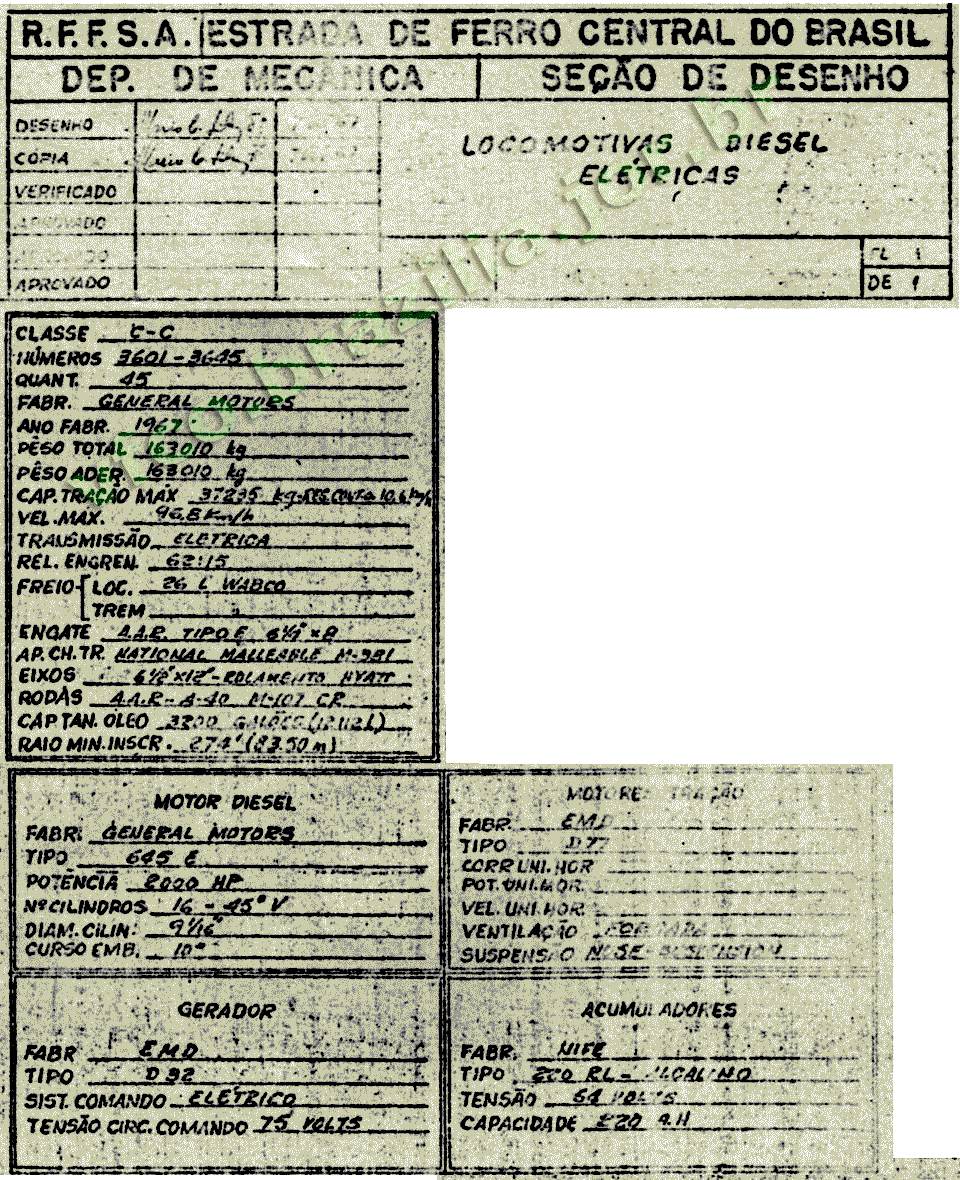 R.F.F.S.A. ESTRADA DE FERRO CENTRAL DO BRASIL
DEP. DE MECÂNICA SEÇÃO DE DESENHO
DESENHO
COPIA
VERIFICADO
APROVADO
APROVADO
APROVADO
LOCOMOTIVAS DIESEL
ELÉTRICAS
FL 1
DE 1
CLASSE C-C
NÚMEROS 3601-3645
QUANT. 45
FABR. GENERAL MOTORS
ANO FABR. 1967
PÊSO TOTAL 163010 kg
PÊSO ADER. 163010 kg
CAP. TRAÇÃO MÁX 37235 kg-REG.CONT.a 10,6 Km/h
VEL. MAX. 96.8 Km/h
TRANSMISSÃO ELETRICA
REL. ENGREN. 62:15
FREIO LOC. 26 L WABCO
TREM
ENGATE A.A.R. TIPO E 6¼" x 8
AP. CH. TR. NATIONAL MALLEABLE M-381
EIXOS 6½"x12"-ROLAMENTO HYATT
RODAS A.A.R-A-40 M-107 CR
CAP TAN. ÓLEO 3200 GALÕES (12.112 L)
RAIO MIN. INSCR. 274' (83.50 m)
MOTOR DIESEL
FABR. GENERAL MOTORS
TIPO 645 E
POTÊNCIA 2000 HP
Nº CILINDROS 16 - 45° V
DIAM. CILIN. 9 1/16"
CURSO EMB. 10"
MOTORES TRAÇÃO
FABR. EMD
TIPO D77
CORR UNI. HOR
POT. UNI. HOR.
VEL. UNI. HOR.
VENTILAÇÃO FORÇADA
SUSPENSÃO NOSE-SUSPENSION
GERADOR
FABR EMD
TIPO D32
SIST. COMANDO ELÉTRICO
TENSÃO CIRC. COMANDO 75 VOLTS
ACUMULADORES
FABR. NIFE
TIPO 220 RL - ALCALINO
TENSÃO 64 VOLTS
CAPACIDADE 220 A.H
vfco.brazilia.jor.br